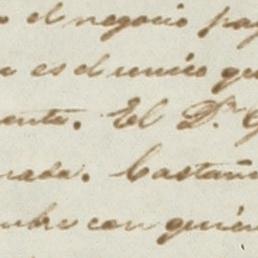 el negocio pa
es el unico qu
ente. El Dr. G
nada. Castañ
mbre con quién